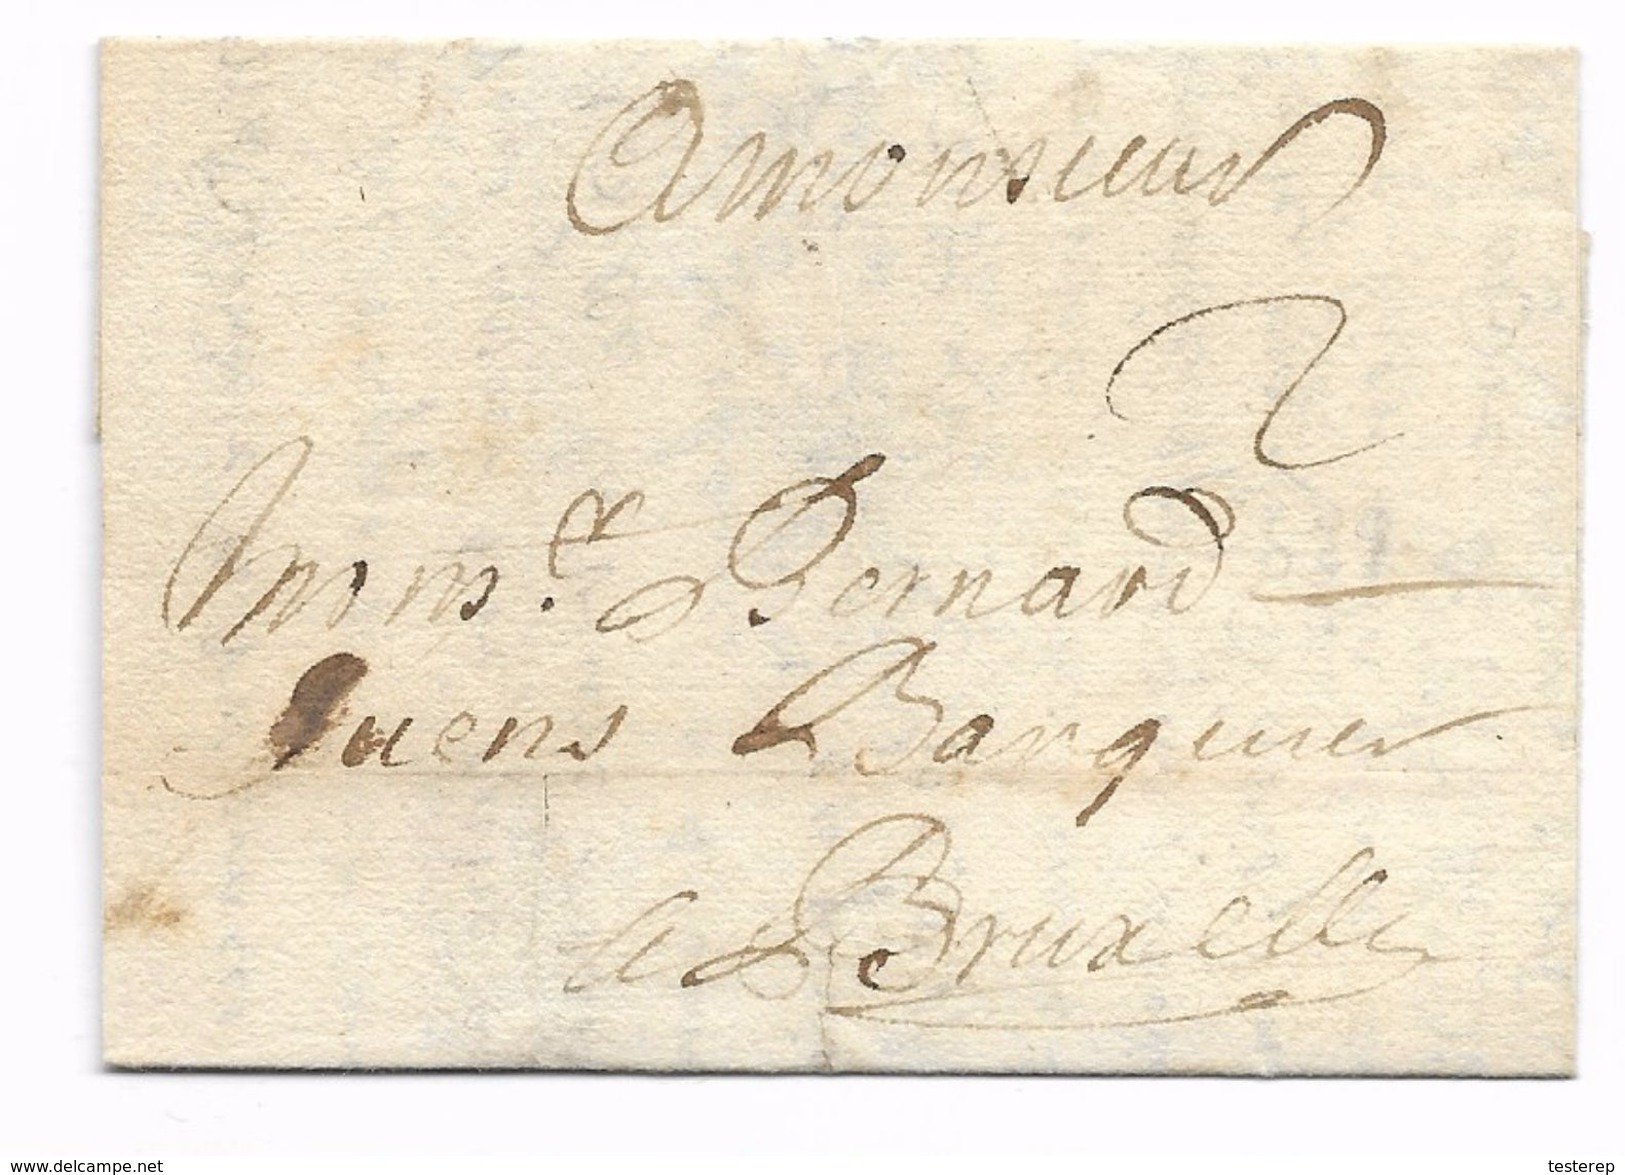 Amonsieur
2
Bernard
Banquier
a Bruxelle
www.delcampe.net
testerep